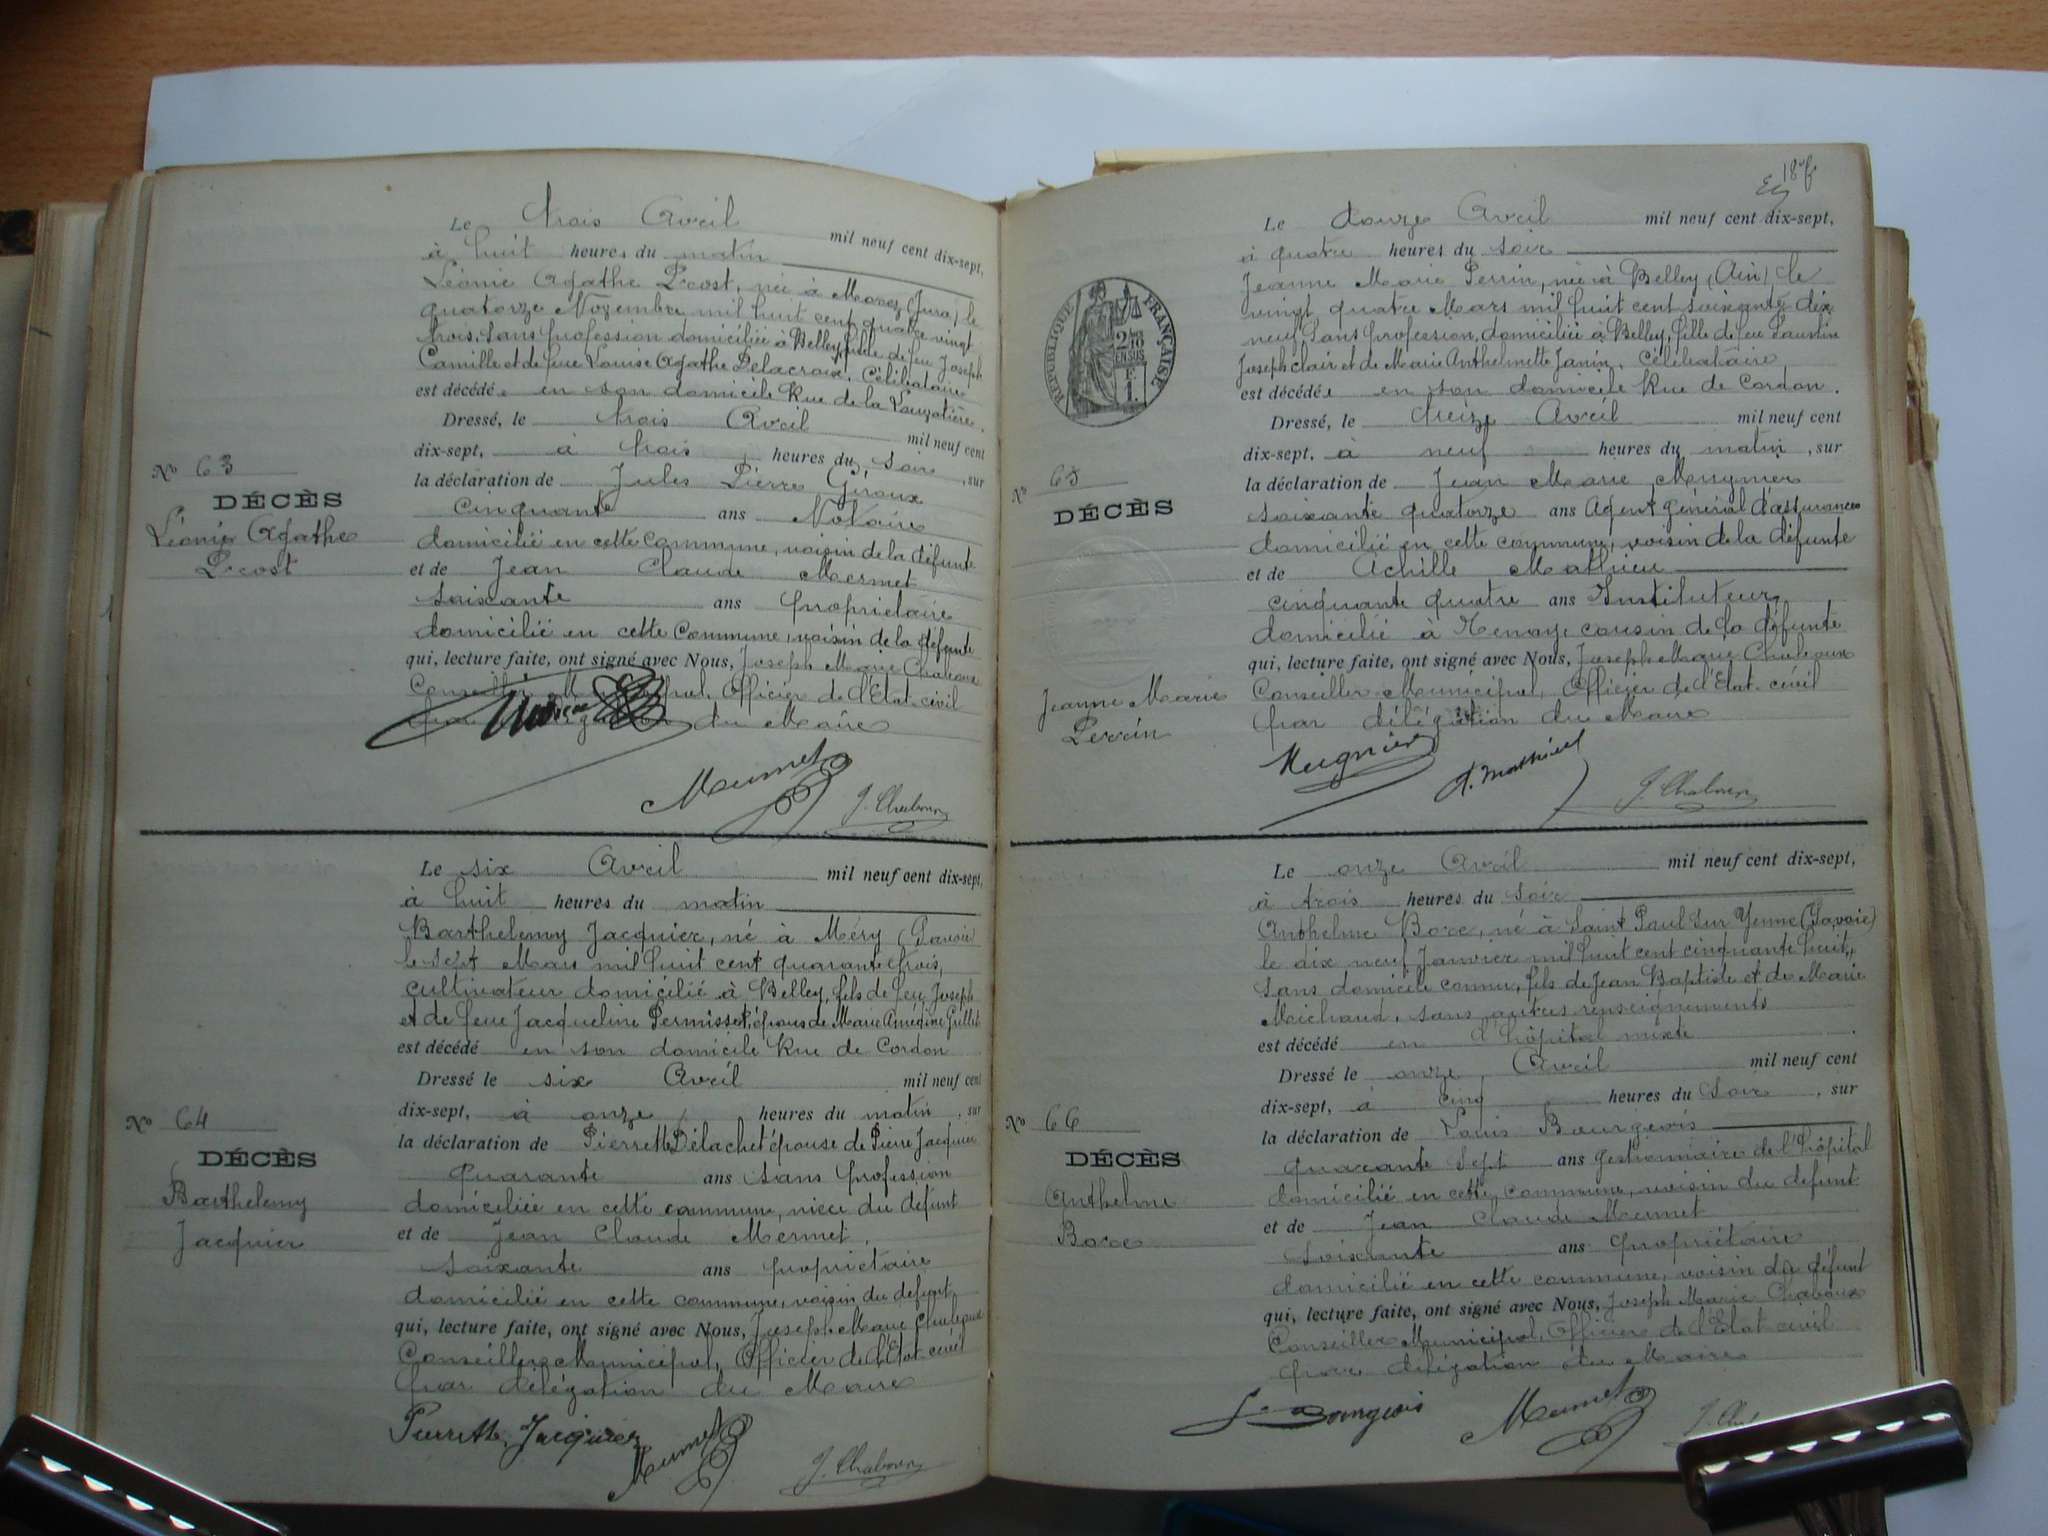 Le trois Avril mil neuf cent dix-sept,
à huit heures du matin
Léonie Agathe Prost, née à Morez (Jura) le
quatorze Novembre mil huit cent quatre vingt
trois, sans profession domiciliée à Belley, fille de feu Joseph
Camille et de feue Louise Agathe Delacroix. Célibataire
est décédée en son domicile Rue de la
Dressé, le trois Avril mil neuf cent
dix-sept, à trois heures du soir, sur
la déclaration de Jules Pierre Giroux
cinquante ans Notaire
domicilié en cette commune, voisin de la défunte
et de Jean Claude Mermet
soixante ans propriétaire
domicilié en cette commune, voisin de la défunte
qui, lecture faite, ont signé avec Nous, Joseph Marie Chaboux
Conseiller Municipal, Officier de l'Etat-civil
par délégation du Maire
Mermet
J. Chaboux
No 63
DÉCÈS
Léonie Agathe
Prost
Le six Avril mil neuf cent dix-sept,
à huit heures du matin
Barthelemy Jacquier, né à Méry (Savoie
le sept Mars mil huit cent quarante trois,
cultivateur domicilié à Belley, fils de feu Joseph
et de feue Jacqueline Permisset, époux de Marie
est décédé en son domicile Rue de Cordon
Dressé le six Avril mil neuf cent
dix-sept, à onze heures du matin, sur
la déclaration de Pierrette Délachet épouse de Pierre Jacquier
quarante ans sans profession
domiciliée en cette commune, nièce du défunt
et de Jean Claude Mermet,
soixante ans propriétaire
domicilié en cette commune, voisin du défunt,
qui, lecture faite, ont signé avec Nous, Joseph Marie Chaboux
Conseiller Municipal, Officier de l'Etat-civil
par délégation du Maire
Pierrette Jacquier
Mermet
J. Chaboux
No 64
DÉCÈS
Barthelemy
Jacquier
Le douze Avril mil neuf cent dix-sept,
à quatre heures du soir
Jeanne Marie Perrin, née à Belley (Ain) le
vingt quatre Mars mil huit cent soixante dix
neuf sans profession, domiciliée à Belley, fille de feu Faustin
Joseph Clair et de Marie Anthelmette Janin. Célibataire
est décédée en son domicile Rue de Cordon.
Dressé, le treize Avril mil neuf cent
dix-sept, à neuf heures du matin, sur
la déclaration de Jean Marie Mugnier
soixante quatorze ans Agent général d'assurances
domicilié en cette commune, voisin de la défunte
et de Achille Mathieu
cinquante quatre ans Instituteur,
domicilié à cousin de la défunte
qui, lecture faite, ont signé avec Nous, Joseph Marie Chaboux
Conseiller Municipal, Officier de l'Etat-civil
par délégation du Maire
Mugnier
A. Mathieu
J. Chaboux
RÉPUBLIQUE FRANÇAISE
2/10
EN SUS
1F
No 65
DÉCÈS
Jeanne Marie
Perrin
Le onze Avril mil neuf cent dix-sept,
à trois heures du soir
Anthelme Bore, né à Saint Paul sur Yenne (Savoie)
le dix neuf Janvier mil huit cent cinquante huit,
sans domicile connu, fils de Jean Baptiste et de Marie
Michaud, sans autres renseignements
est décédé en l'hôpital mixte
Dressé le onze Avril mil neuf cent
dix-sept, à cinq heures du soir, sur
la déclaration de Louis Bourgeois
quarante sept ans gestionnaire de l'hôpital
domicilié en cette commune, voisin du défunt
et de Jean Claude Mermet
soixante ans propriétaire
domicilié en cette commune, voisin du défunt
qui, lecture faite, ont signé avec Nous, Joseph Marie Chaboux
Conseiller Municipal, Officier de l'Etat-civil
par délégation du Maire
L. Bourgeois
Mermet
No 66
DÉCÈS
Anthelme
Bore